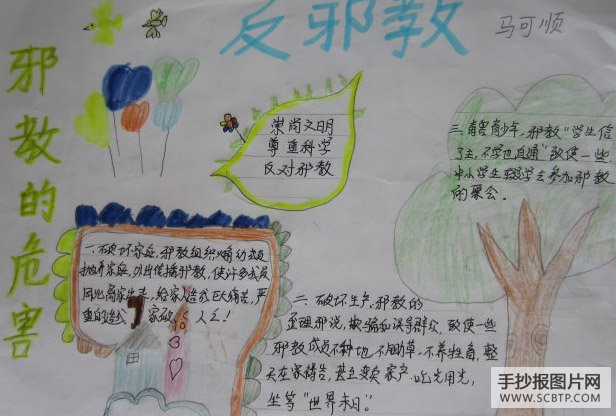 反邪教
马可顺
邪教的危害
崇尚文明
尊重科学
反对邪教
三、毒害青少年,邪教“学生信
了主,不学也直通”致使一些
中小学生轻学去参加邪教
的聚会。
一、破坏家庭,邪教组织煽动成员
抛弃家庭,外出传播邪教,使许多成员
因此离家出走,给家人造成巨大痛苦,严
重的造成家破人亡!
二、破坏生产,邪教的
歪理邪说,欺骗和误导群众,致使一些
邪教成员不种地、不锄草、不养牲畜,整
天在家祷告,甚至变卖家产,吃光用光,
坐等“世界末日”。
手抄报图片网
WWW.SCBTP.COM